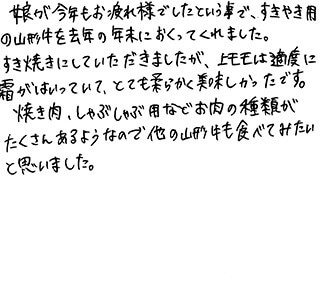 娘が今年もお疲れ様でしたという事で、すきやき用
の山形牛を去年の年末におくってくれました。
すき焼きにしていただきましたが、上モモは適度に
霜がはいっていて、とても柔らかく美味しかったです。
焼き肉、しゃぶしゃぶ用などお肉の種類が
たくさんあるようなので他の山形牛も食べてみたい
と思いました。